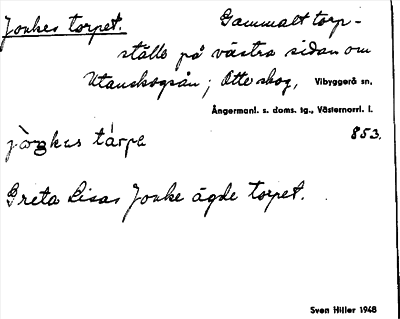 Jonkes torpet. Gammalt torp-
ställe på västra sidan om
Utanskogsån; Otterskog, Vibyggerå sn,
Ångermanl. s. doms. tg., Västernorrl. l.
853.
jåŋkəs tårpe
Greta Lisas Jonke ägde torpet.
Sven Hiller 1948